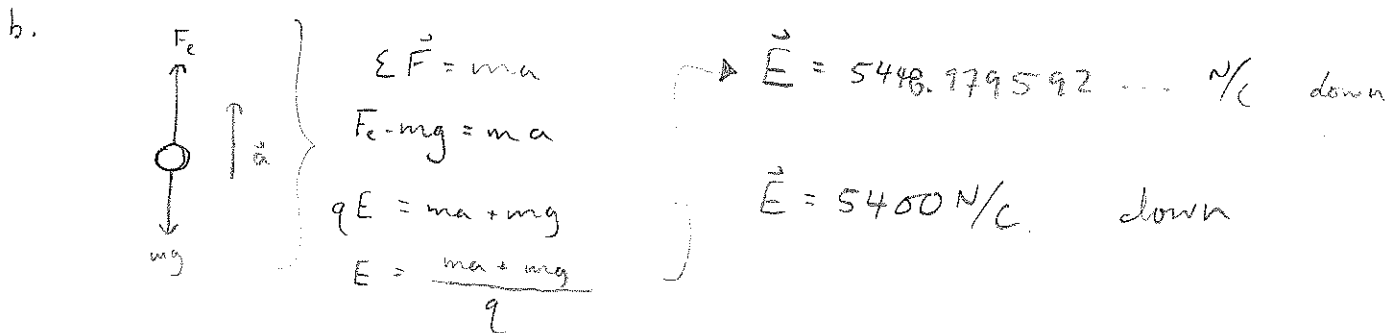 b.
Fe
a⃗
mg
Σ F⃗ = ma
Fe - mg = ma
qE = ma + mg
E = (ma + mg) / q
E⃗ = 5448.979592 ... N/C down
E⃗ = 5400 N/C. down